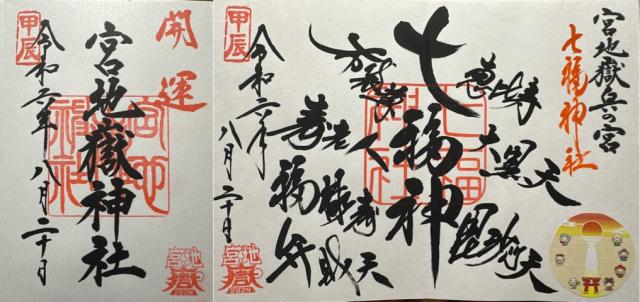 開運
宮地嶽神社
甲辰
令和六年八月二十日
宮地嶽
2024
宮地嶽兵の宮
七福神社
恵比寿
大黒天
毘沙門天
七福神
弁財天
福禄寿
寿老人
布袋尊
甲辰
令和六年八月二十日
宮地嶽
2024